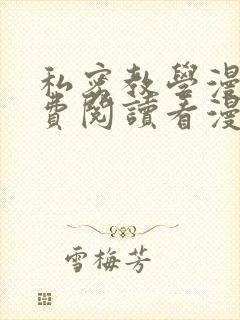 私密教學漫
費閱讀看漫
雪梅芳